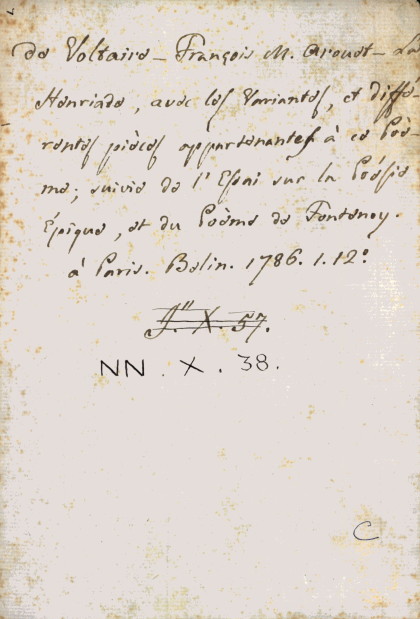 de Voltaire - François M. Arouet - La
Henriade, avec les Variantes, et diffé-
rentes pièces appartenantes à ce Poè-
me; suivie de l'Essai sur la Poésie
Épique, et du Poème de Fontenoy.
à Paris. Belin. 1786. 1. 12°
J". X. 57.
NN. X. 38.
C